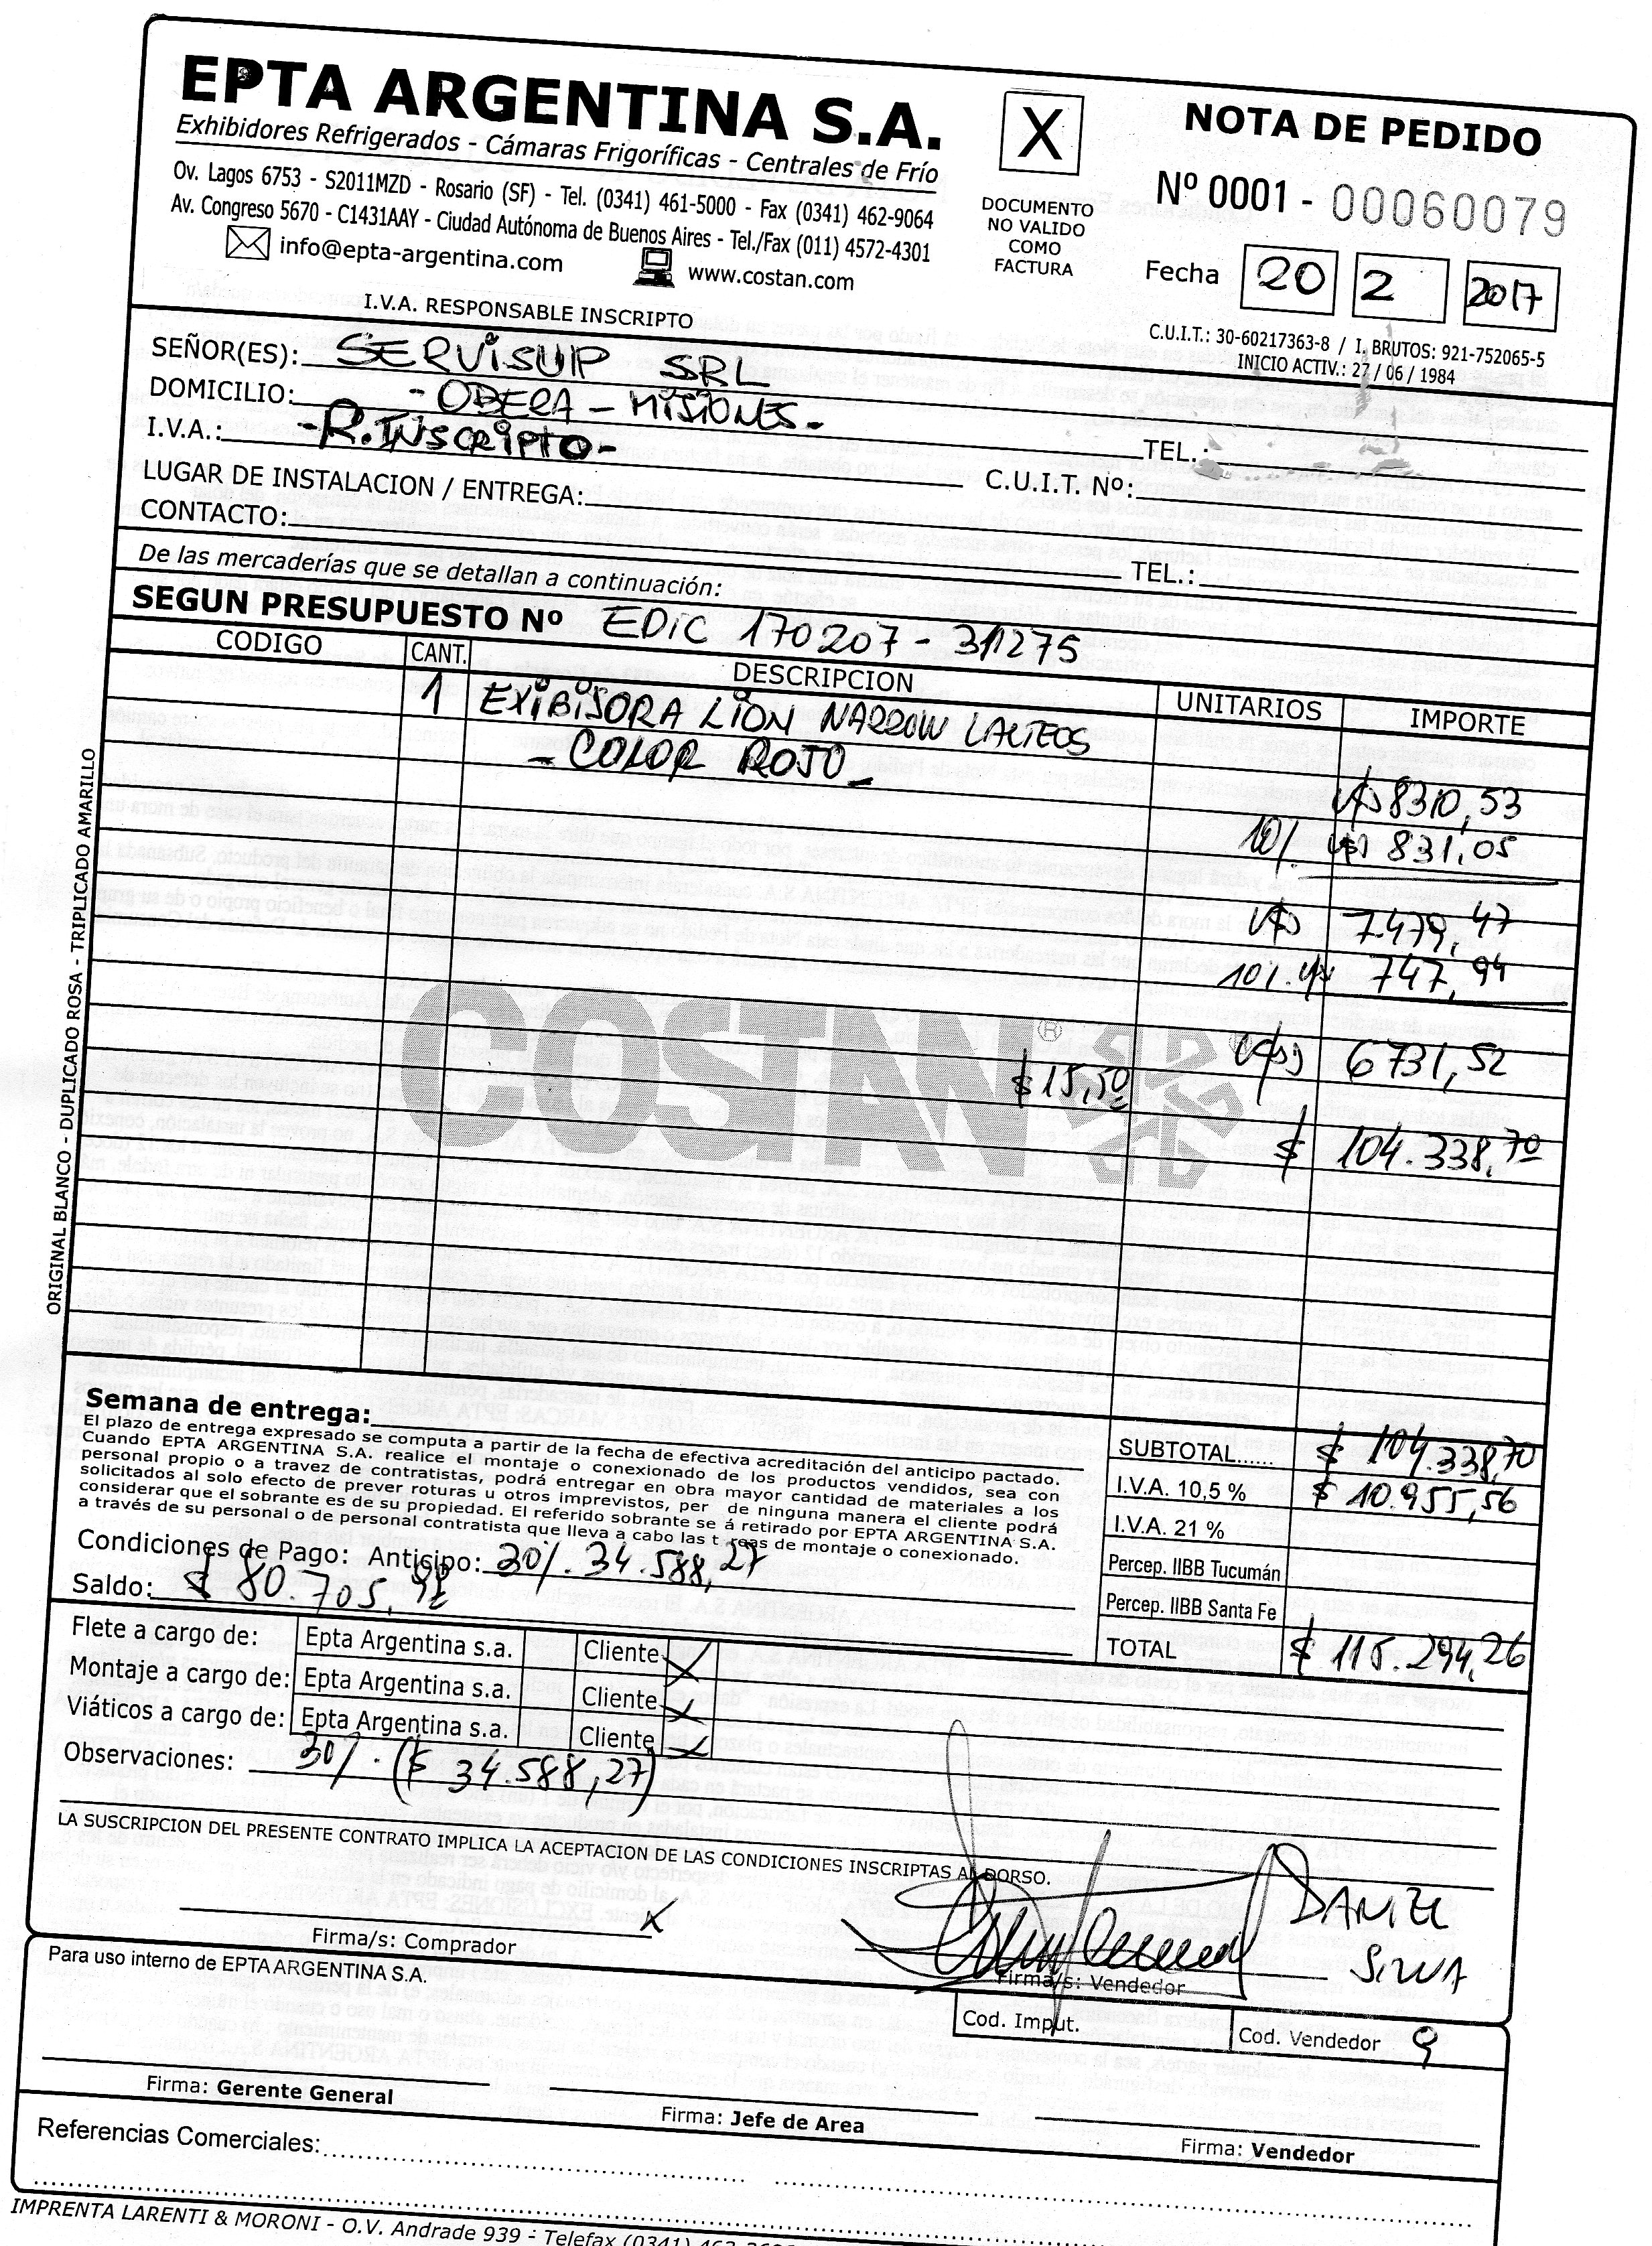 EPTA ARGENTINA S.A.
Exhibidores Refrigerados - Cámaras Frigoríficas - Centrales de Frío
Ov. Lagos 6753 - S2011MZD - Rosario (SF) - Tel. (0341) 461-5000 - Fax (0341) 462-9064
Av. Congreso 5670 - C1431AAY - Ciudad Autónoma de Buenos Aires - Tel./Fax (011) 4572-4301
info@epta-argentina.com www.costan.com
I.V.A. RESPONSABLE INSCRIPTO
X
DOCUMENTO
NO VALIDO
COMO
FACTURA
NOTA DE PEDIDO
Nº 0001 - 00060079
Fecha 20 2 2017
C.U.I.T.: 30-60217363-8 / I. BRUTOS: 921-752065-5
INICIO ACTIV.: 27 / 06 / 1984
SEÑOR(ES): SERVISUP SRL
DOMICILIO: - OBERA - MISIONES -
TEL.:
I.V.A.: - R. INSCRIPTO -
C.U.I.T. Nº:
LUGAR DE INSTALACION / ENTREGA:
CONTACTO:
TEL.:
De las mercaderías que se detallan a continuación:
SEGUN PRESUPUESTO Nº EDIC 170207 - 311275
CODIGO CANT. DESCRIPCION UNITARIOS IMPORTE
1 EXIBISORA LION NARROW LACTEOS
- COLOR ROJO -
U$S 8310,53
10%. U$S 831,05
U$S 7.479,47
10%. U$S 747,94
U$S 6731,52
$ 15,50
$ 104.338,70
COSTAN ®
ORIGINAL BLANCO - DUPLICADO ROSA - TRIPLICADO AMARILLO
Semana de entrega:
El plazo de entrega expresado se computa a partir de la fecha de efectiva acreditación del anticipo pactado.
Cuando EPTA ARGENTINA S.A. realice el montaje o conexionado de los productos vendidos, sea con
personal propio o a travez de contratistas, podrá entregar en obra mayor cantidad de materiales a los
solicitados al solo efecto de prever roturas u otros imprevistos, per de ninguna manera el cliente podrá
considerar que el sobrante es de su propiedad. El referido sobrante se á retirado por EPTA ARGENTINA S.A.
a través de su personal o de personal contratista que lleva a cabo las t reas de montaje o conexionado.
Condiciones de Pago: Anticipo: 30%. 34.588,27
Saldo: $ 80.705,98
SUBTOTAL...... $ 104.338,70
I.V.A. 10,5 % $ 10.955,56
I.V.A. 21 %
Percep. IIBB Tucumán
Percep. IIBB Santa Fe
TOTAL $ 115.294,26
Flete a cargo de: Epta Argentina s.a. Cliente X
Montaje a cargo de: Epta Argentina s.a. Cliente X
Viáticos a cargo de: Epta Argentina s.a. Cliente X
Observaciones: 30%. ($ 34.588,27)
LA SUSCRIPCION DEL PRESENTE CONTRATO IMPLICA LA ACEPTACION DE LAS CONDICIONES INSCRIPTAS AL DORSO.
X
Firma/s: Comprador
DANIEL
SILVA
Firma/s: Vendedor
Para uso interno de EPTA ARGENTINA S.A.
Cod. Imput.
Cod. Vendedor 9
Firma: Gerente General
Firma: Jefe de Area
Firma: Vendedor
Referencias Comerciales:
IMPRENTA LARENTI & MORONI - O.V. Andrade 939 - Telefax (0341)